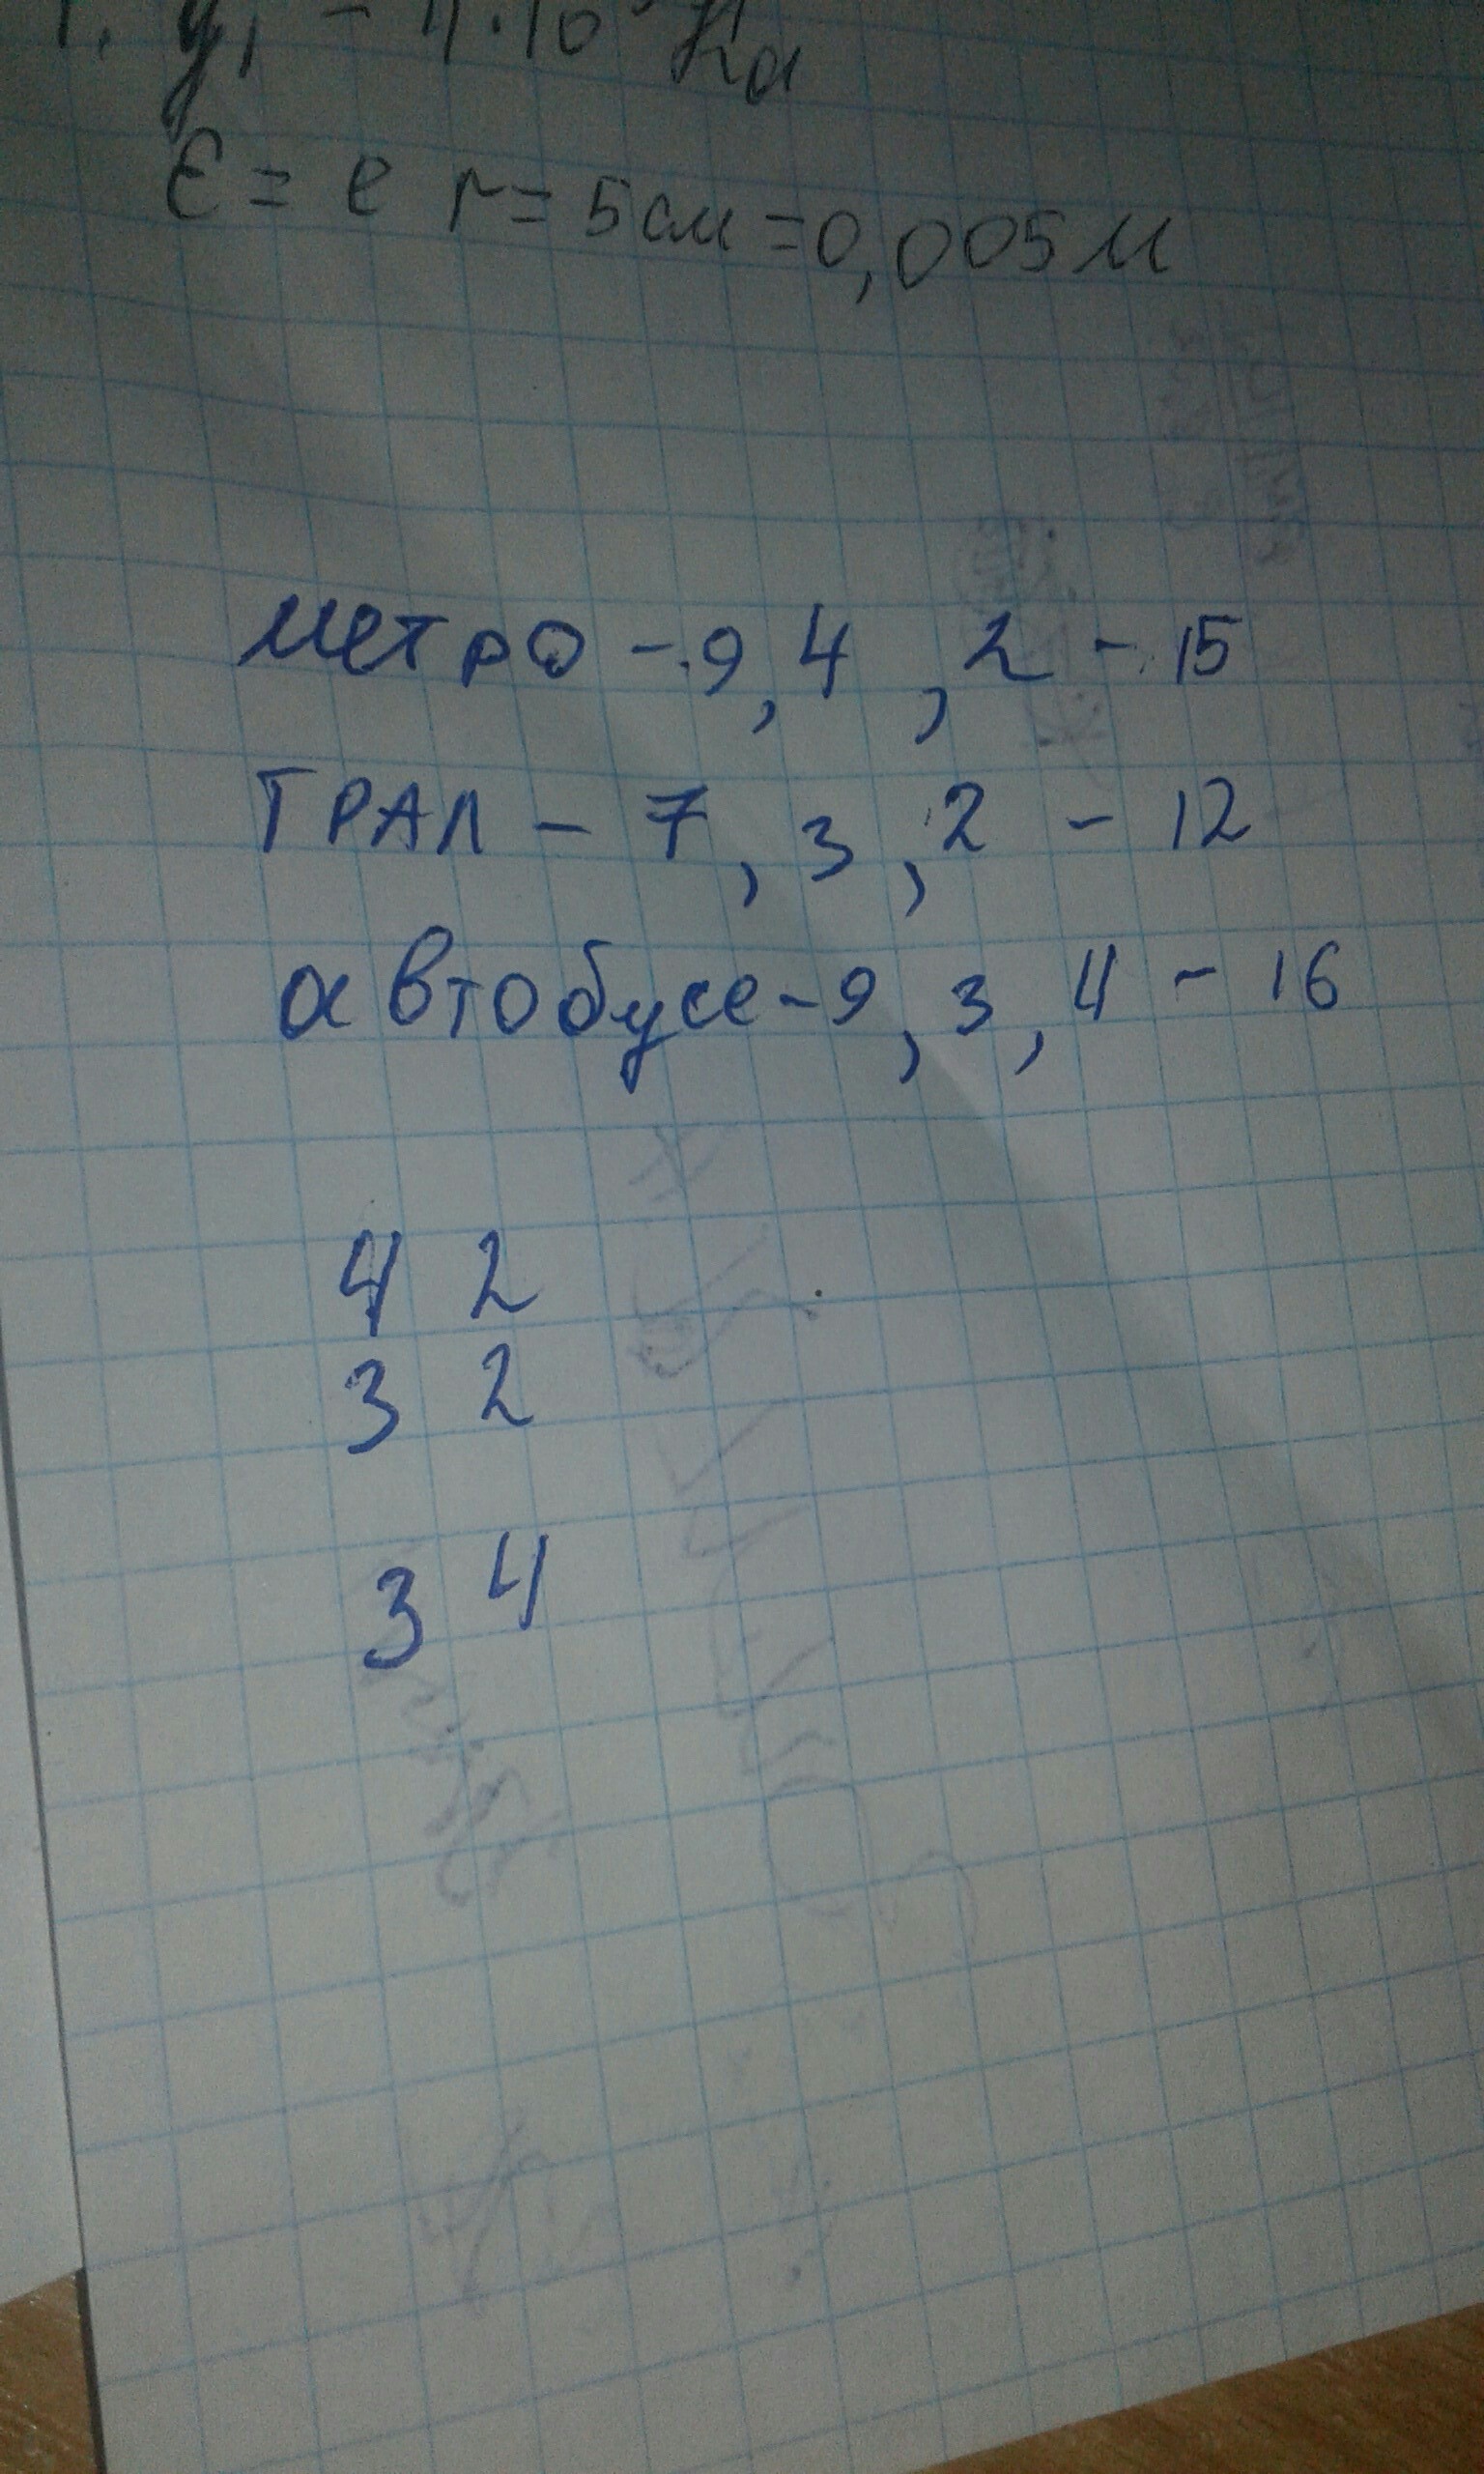 ε = e r = 5 см = 0,005 м
метро - 9, 4, 2 - 15
ТРАЛ - 7, 3, 2 - 12
автобусе - 9, 3, 4 - 16
4 2
3 2
3 4